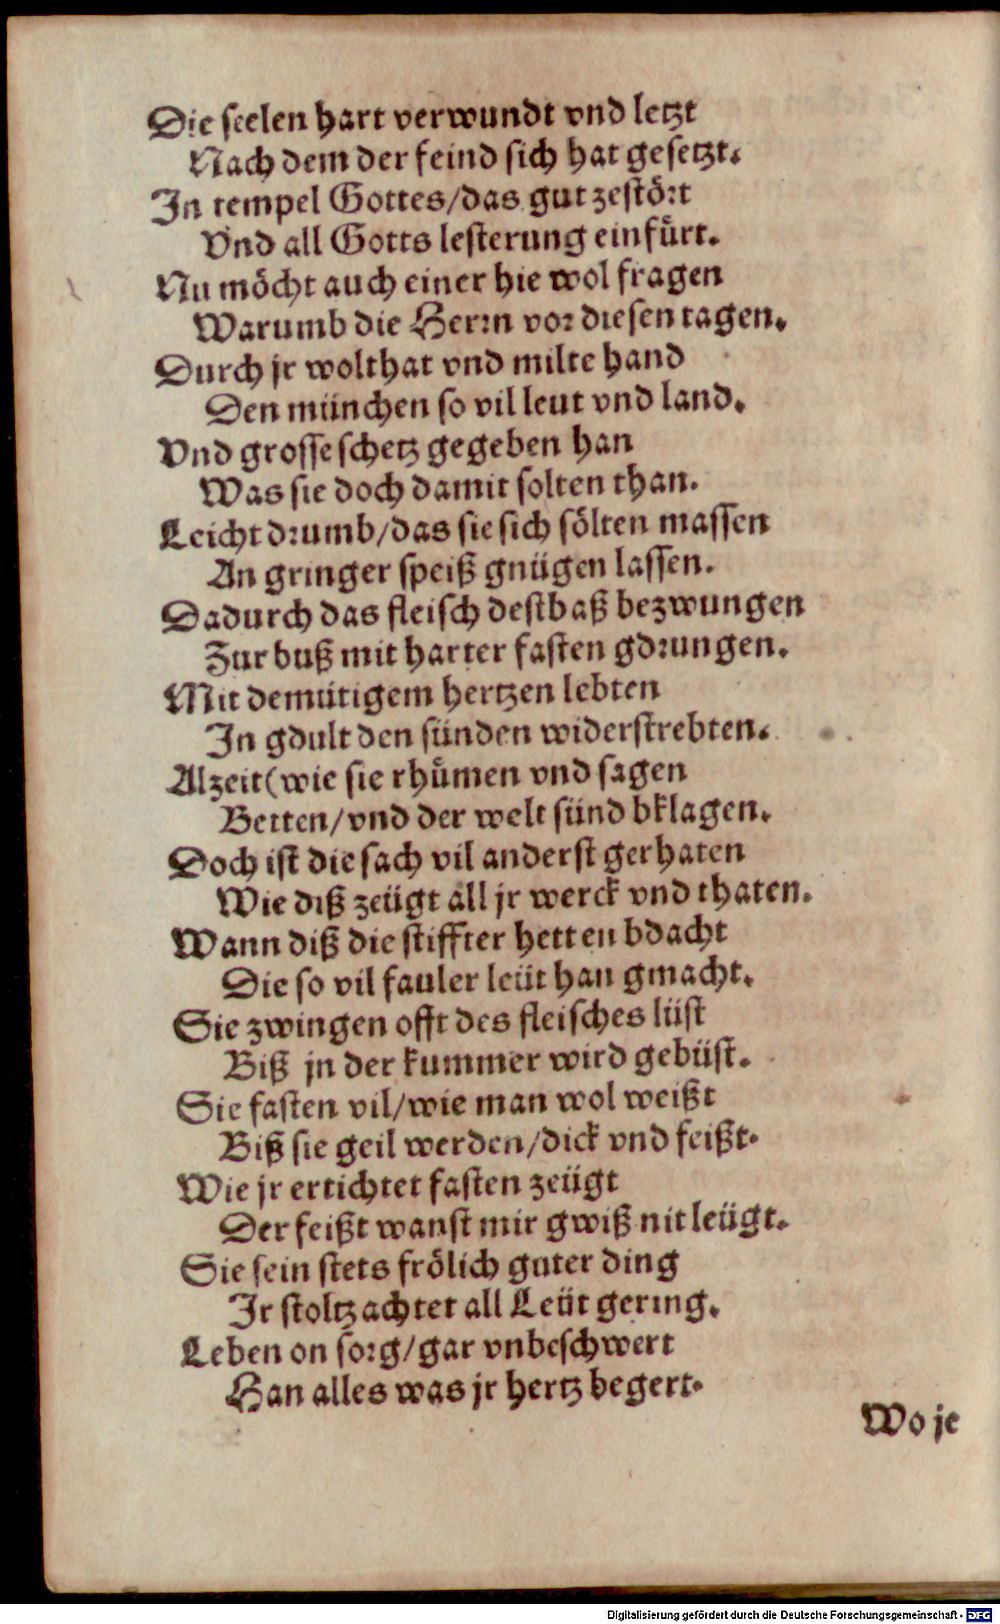 Die seelen hart verwundt vnd letzt
Nach dem der feind sich hat gesetzt.
In tempel Gottes/das gut zestört
Vnd all Gotts lesterung einfůrt.
Nu möcht auch einer hie wol fragen
Warumb die Herrn vor diesen tagen.
Durch jr wolthat vnd milte hand
Den münchen so vil leut vnd land.
Vnd grosse schetz gegeben han
Was sie doch damit solten than.
Leicht drumb/das sie sich sölten massen
An gringer speiß gnügen lassen.
Dadurch das fleisch destbaß bezwungen
Zur buß mit harter fasten gdrungen.
Mit demütigem hertzen lebten
In gdult den sünden widerstrebten.
Alzeit(wie sie rhůmen vnd sagen
Betten/vnd der welt sünd bklagen.
Doch ist die sach vil anderst gerhaten
Wie diß zeügt all jr werck vnd thaten.
Wann diß die stiffter hetten bdacht
Die so vil fauler leüt han gmacht.
Sie zwingen offt des fleisches lüst
Biß jn der kummer wird gebüst.
Sie fasten vil/wie man wol weißt
Biß sie geil werden/dick vnd feißt.
Wie jr ertichtet fasten zeügt
Der feißt wanst mir gwiß nit leügt.
Sie sein stets frölich guter ding
Ir stoltz achtet all Leüt gering.
Leben on sorg/gar vnbeschwert
Han alles was jr hertz begert.
Wo je
Digitalisierung gefördert durch die Deutsche Forschungsgemeinschaft - DFG